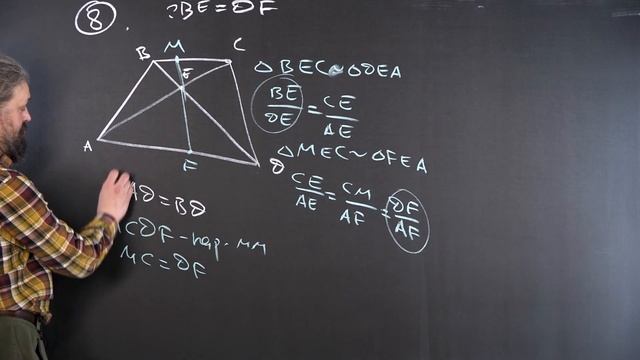 8
?BE = DF
B M C
E
A F D
△BEC ~ △DEA
BE/DE = CE/AE
△MEC ~ △FEA
CE/AE = CM/AF = DF/AF
AD = BD
CDF - пар-мм
MC = DF